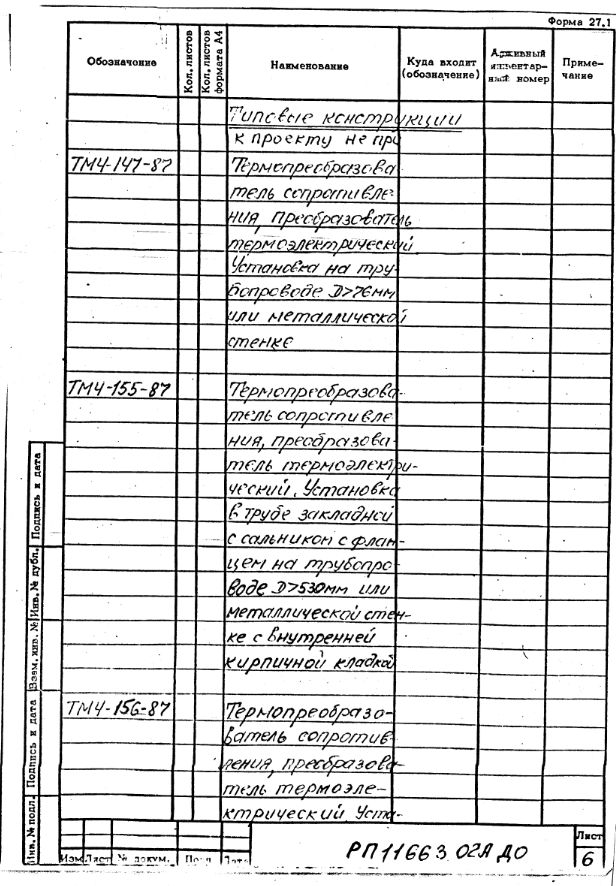 Форма 27.1
Обозначение
Кол. листов
Кол. листов формата А4
Наименование
Куда входит (обозначение)
Архивный инвентарный номер
Приме-
чание
Типовые конструкции
к проекту не при
ТМ4-147-87 Термопреобразова
тель сопротивле-
ния, преобразователь
термоэлектрический
Установка на тру-
бопроводе D>76мм
или металлической
стенке
ТМ4-155-87 Термопреобразова-
тель сопротивле
ния, преобразова-
тель термоэлектри-
ческий. Установка
в трубе закладной
с сальником с флан-
цем на трубопро-
воде D>530мм или
металлической стен-
ке с внутренней
кирпичной кладкой
ТМ4-156-87 Термопреобразо-
ватель сопротив-
ления, преобразова-
тель термоэле-
ктрический Уста-
Подпись и дата
Инв. № дубл.
Взам. инв. №
Подпись и дата
Инв. № подл.
Изм Лист № докум. Подп Дата
РП11663.02Л ДО
Лист
6